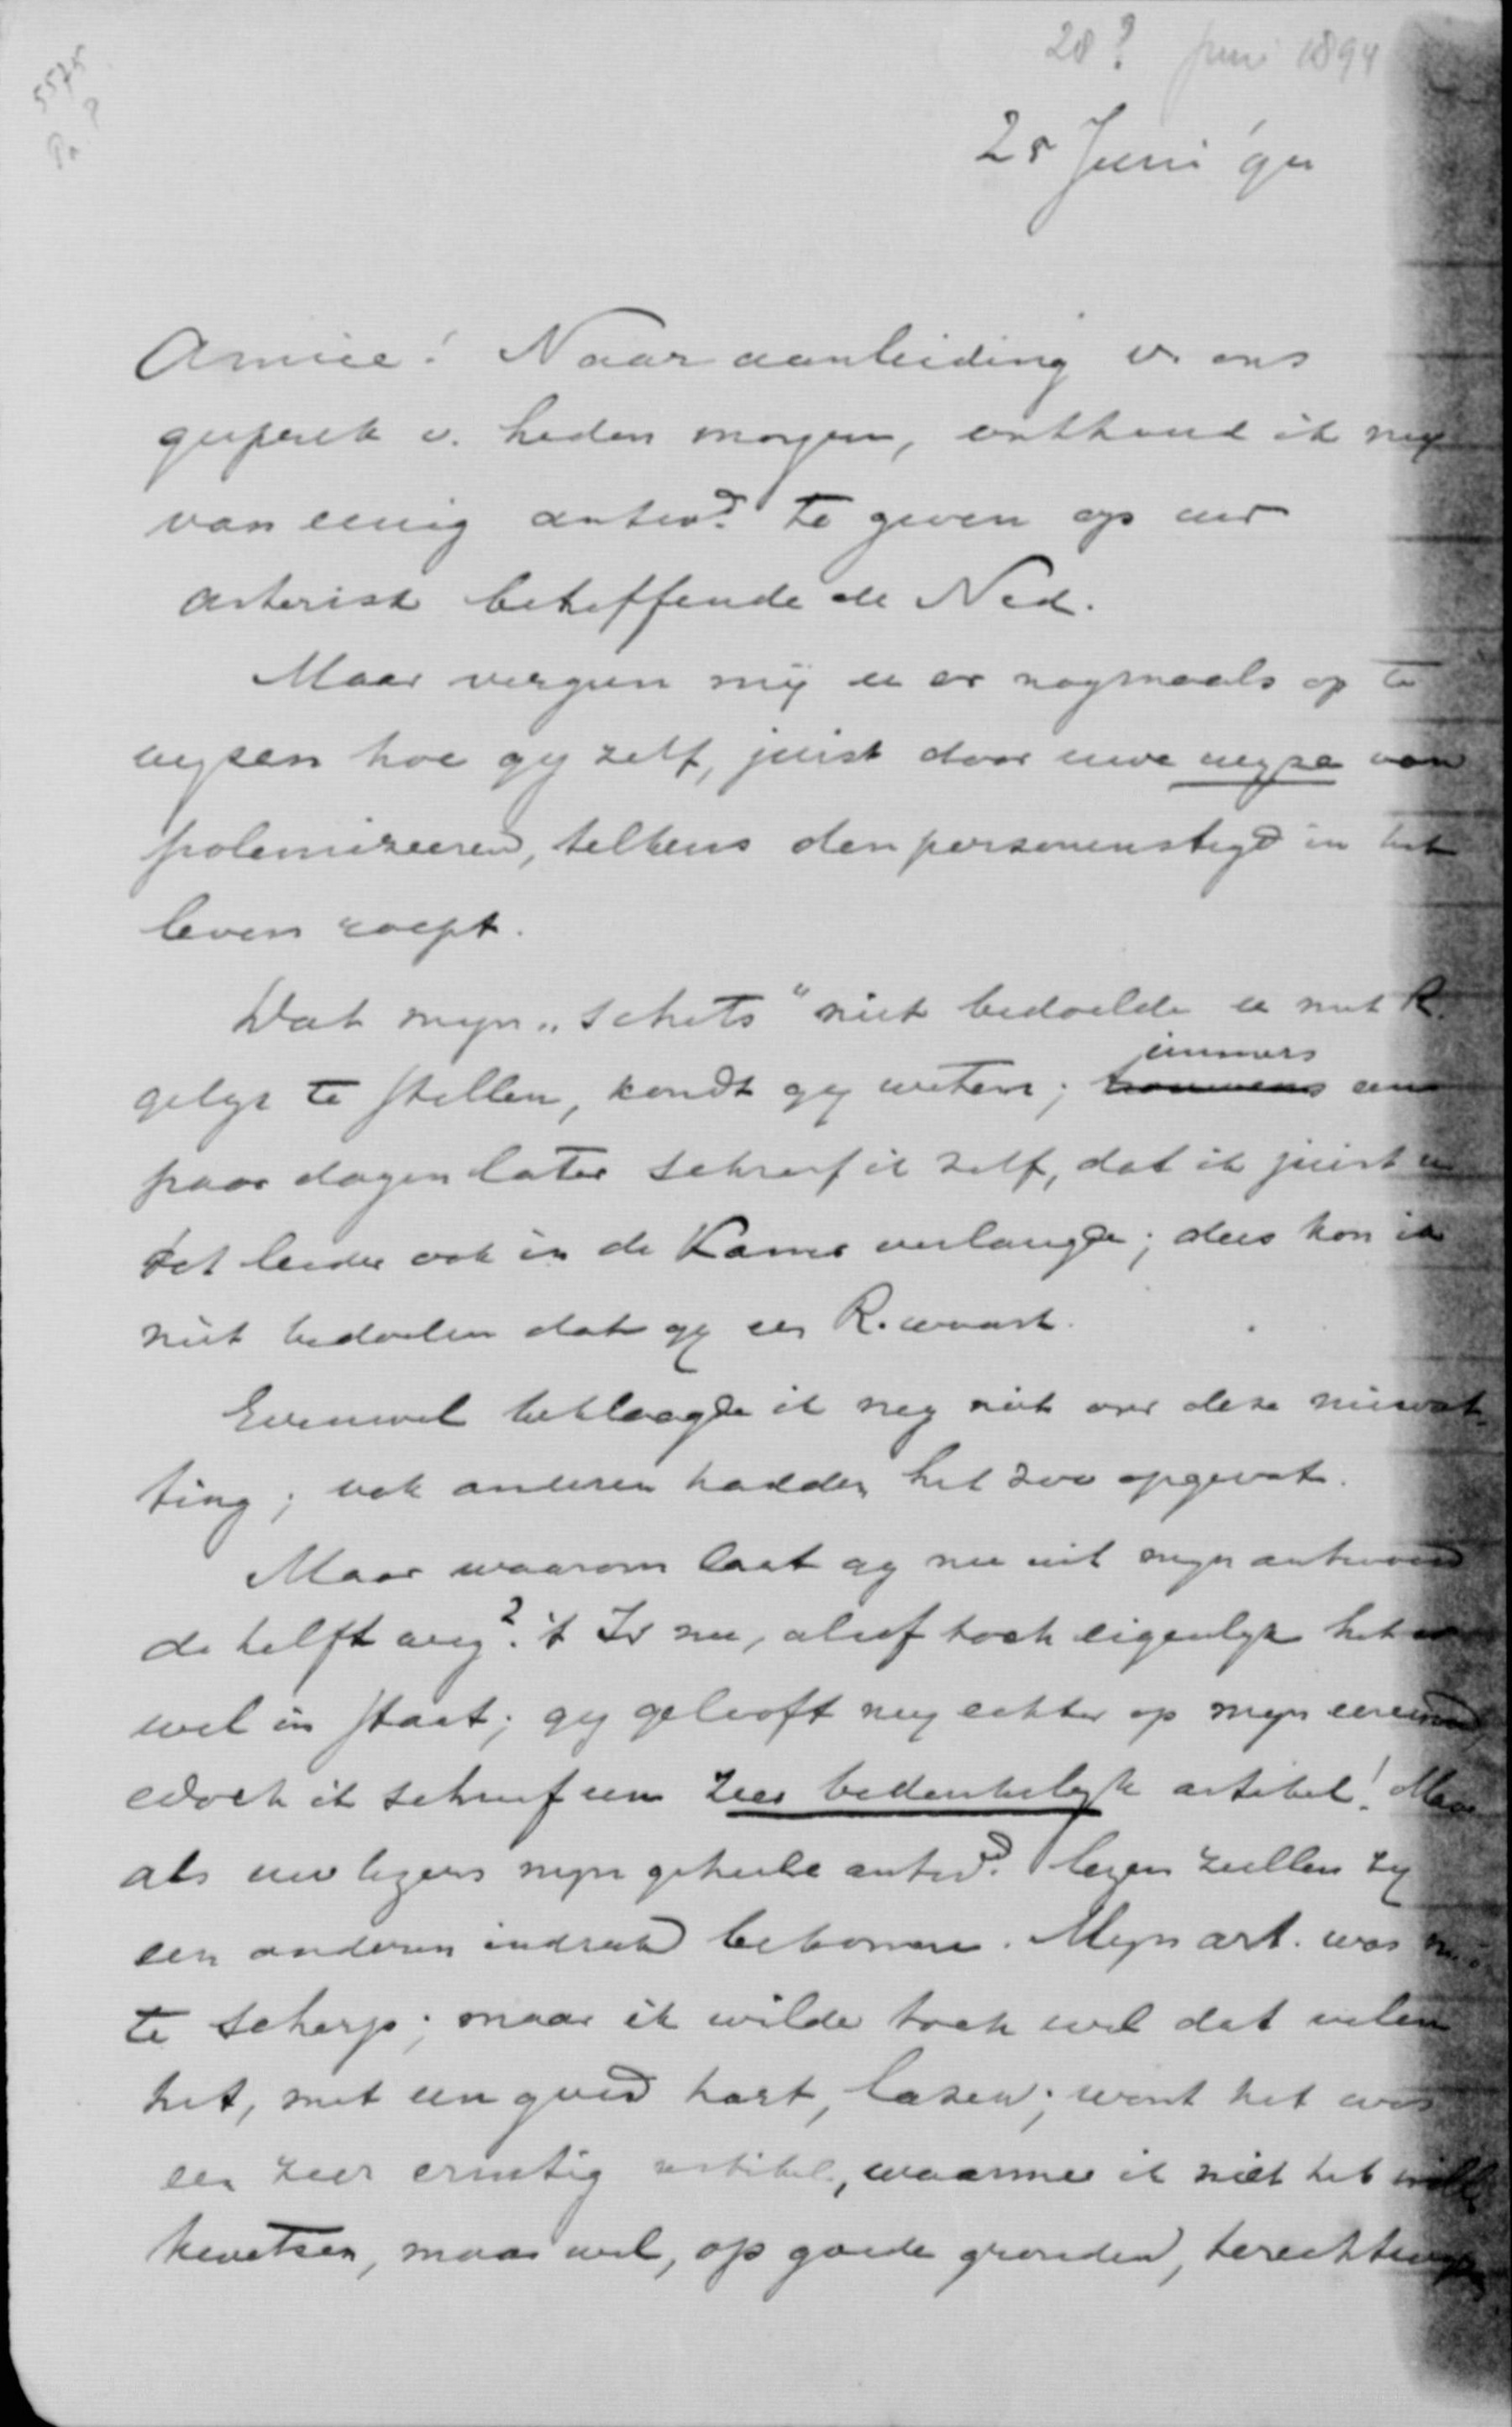 28? Juni 1894
5575
Pa ?
28 Juni '94
Amice! Naar aanleiding v. ons
gesprek v. heden morgen, onthoud ik my
van eenig antwd. te geven op uw
asterisk betreffende de Ned.
Maar vergun mij u er nogmaals op te
wyzen hoe gy zelf, juist door uwe wyze van
polemizeeren, telkens den personenstryd in het
leven roept.
Dat myn „Schets" niet bedoelde u met R.
gelyk te stellen, kondt gy weten; immers een
paar dagen later schreef ik zelf, dat ik juist u
tot leider ook in de Kamer verlangde; dus kon ik
niet bedoelen dat gy een R. waart.
Evenwel beklaagde ik my niet over deze misvat-
ting; ook anderen hadden het zoo opgevat.
Maar waarom laat gy nu uit myn antwoord
de helft weg? 't Is nu, alsof toch eigenlyk het er
wel in staat; gy gelooft my echter op myn eerewoord,
edoch ik schreef een zeer bedenkelyk artikel! Maar
als uw lezers myn geheele antwd. lezen zullen zy
een anderen indruk bekomen. Myn art. was
te scherp; maar ik wilde toch wel dat velen
het, met een goed hart, lazen; want het was
een zeer ernstig artikel, waarmee ik niet heb wille
kwetsen, maar wel, op goede gronden,